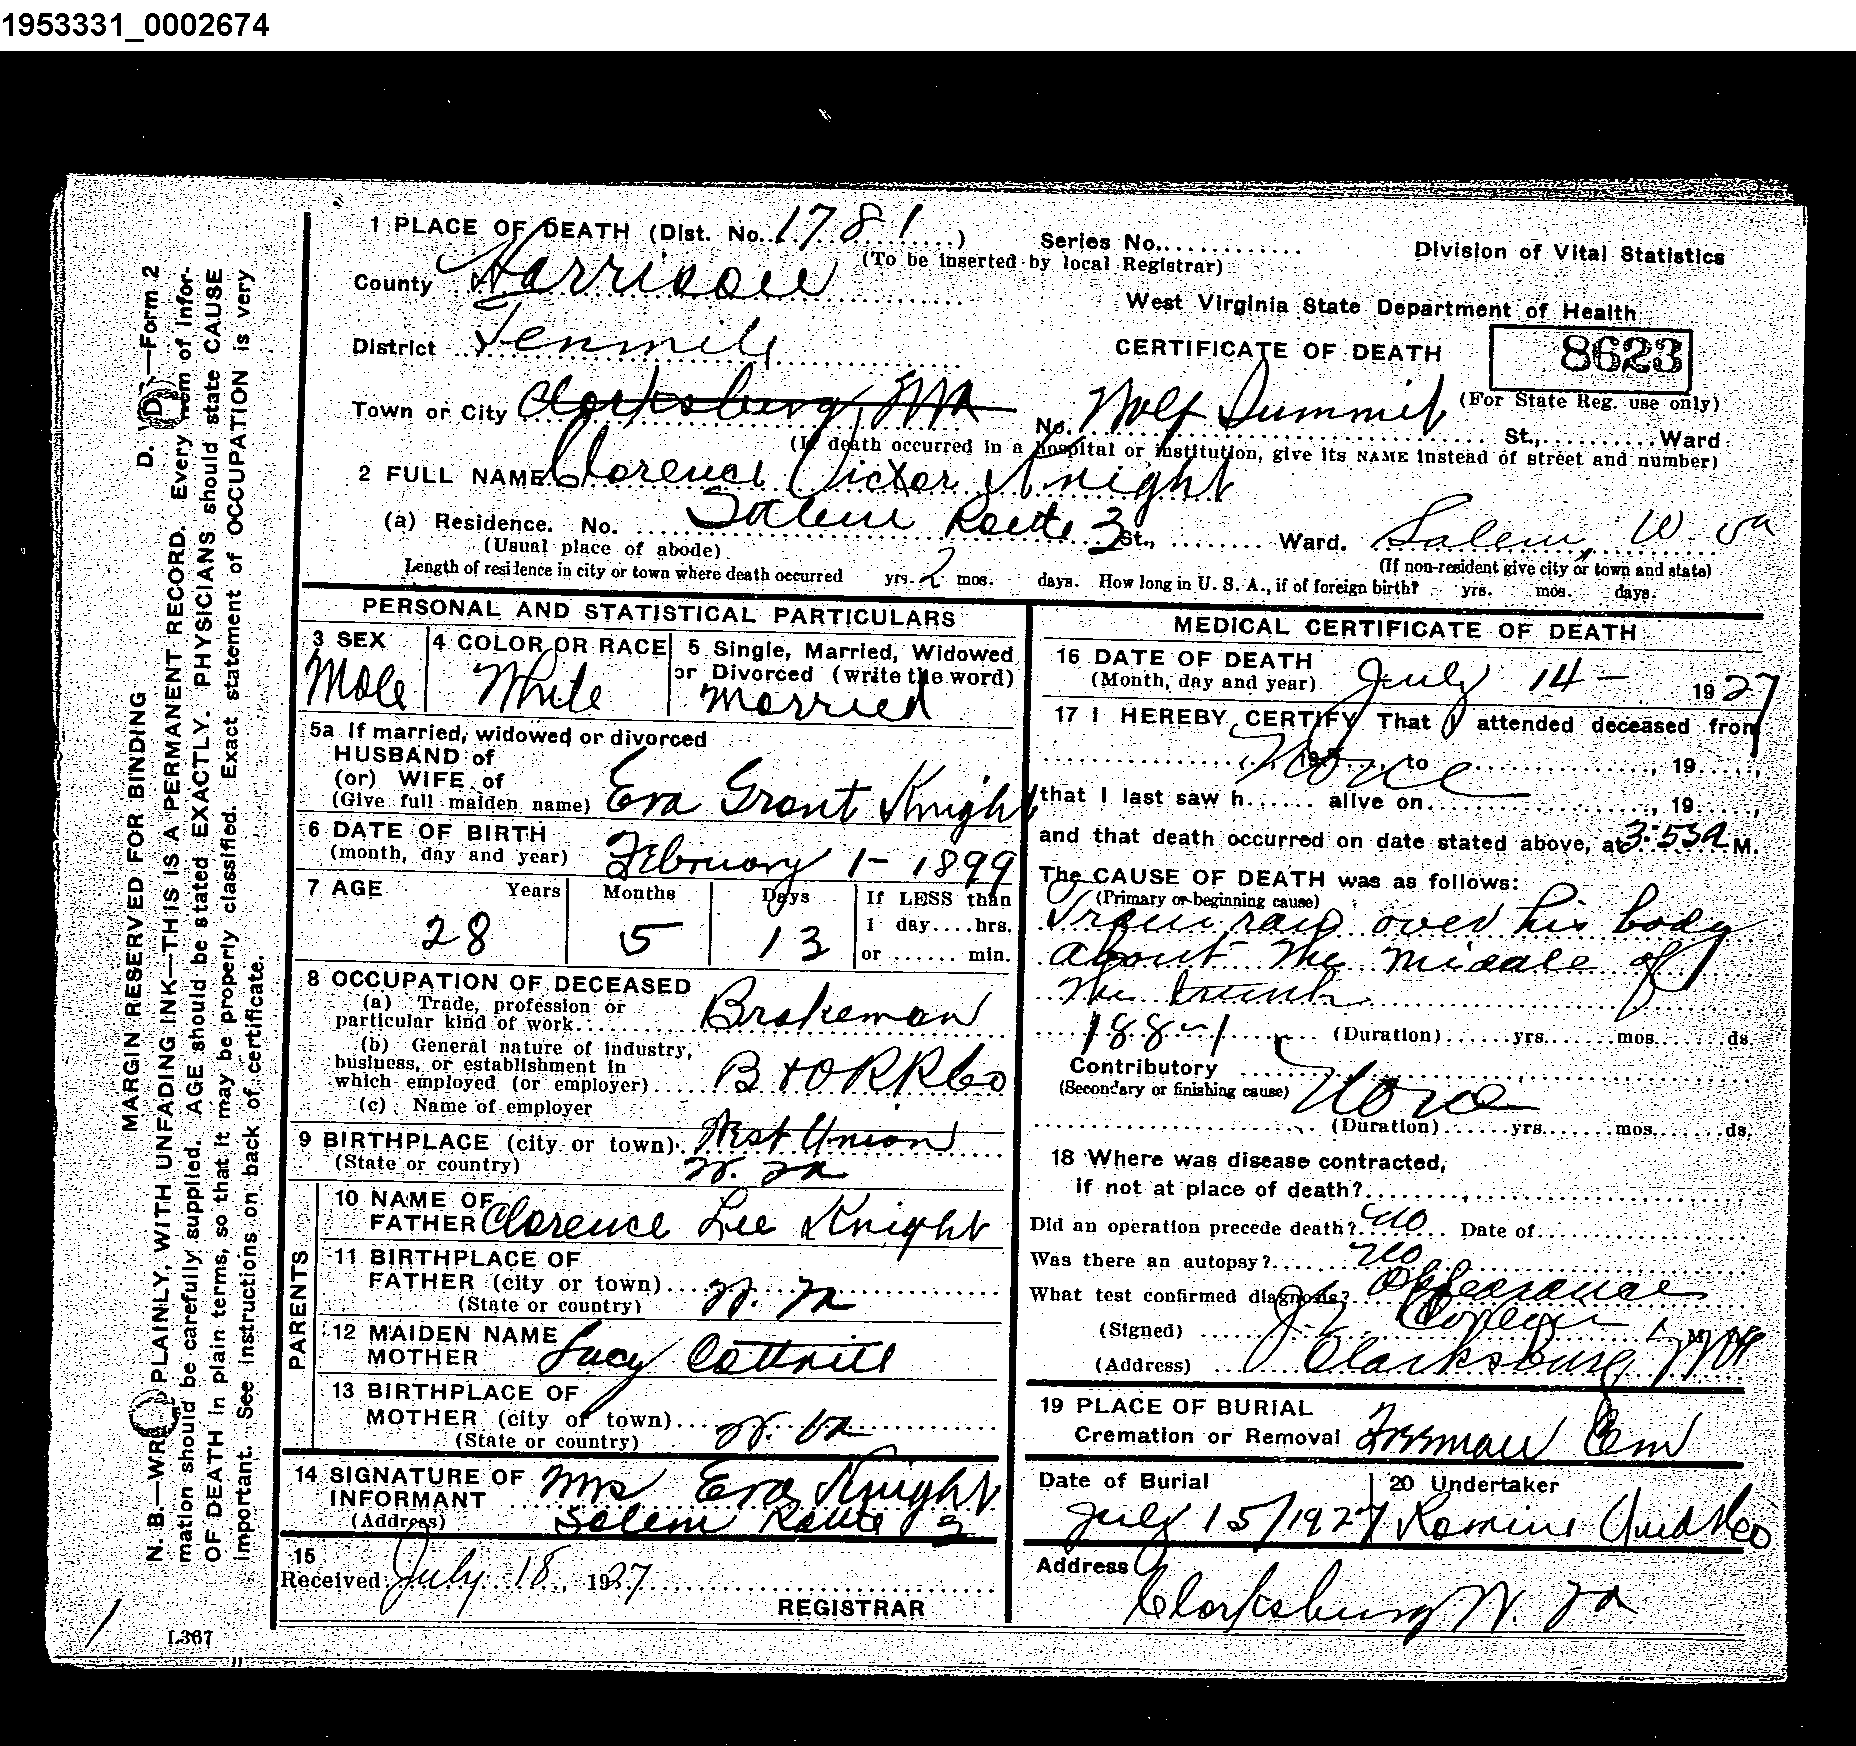 1953331_0002674
1 PLACE OF DEATH (Dist. No. 1781 )
Series No.
(To be inserted by local Registrar)
Division of Vital Statistics
County Harrison
West Virginia State Department of Health
District Tenmile
CERTIFICATE OF DEATH
8623
(For State Reg. use only)
Town or City Clarksburg, WVa No. Wolf Summit St., Ward
(If death occurred in a hospital or institution, give its NAME instead of street and number)
2 FULL NAME Clarence Victor Knight
(a) Residence. No. Salem Route 3 St., Ward. Salem, W. Va
(Usual place of abode) (If non-resident give city or town and state)
Length of residence in city or town where death occurred yrs. 2 mos. days. How long in U. S. A., if of foreign birth? yrs. mos. days.
PERSONAL AND STATISTICAL PARTICULARS
3 SEX
Male
4 COLOR OR RACE
White
5 Single, Married, Widowed
or Divorced (write the word)
Married
5a If married, widowed or divorced
HUSBAND of
(or) WIFE of
(Give full maiden name) Eva Grant Knight
6 DATE OF BIRTH
(month, day and year) February 1- 1899
7 AGE Years Months Days If LESS than
1 day....hrs.
28 5 13
or ...... min.
8 OCCUPATION OF DECEASED
(a) Trade, profession or
particular kind of work Brakeman
(b) General nature of industry,
business, or establishment in
which employed (or employer) B+O RR Co
(c) Name of employer
9 BIRTHPLACE (city or town) West Union
(State or country) W. Va
PARENTS
10 NAME OF
FATHER Clarence Lee Knight
11 BIRTHPLACE OF
FATHER (city or town)
(State or country) W. Va
12 MAIDEN NAME
MOTHER Lucy Cottrill
13 BIRTHPLACE OF
MOTHER (city or town) W. Va
(State or country)
14 SIGNATURE OF
INFORMANT Mrs Eva Knight
(Address) Salem Route 3
15
Received July 18, 1927
REGISTRAR
MEDICAL CERTIFICATE OF DEATH
16 DATE OF DEATH
(Month, day and year) July 14- 1927
17 I HEREBY CERTIFY That I attended deceased from
None 19 to , 19 ,
that I last saw h...... alive on , 19 ,
and that death occurred on date stated above, at 3:53 a M.
The CAUSE OF DEATH was as follows:
(Primary or beginning cause)
Train ran over his body
about the middle of
the trunk
188-1 (Duration) yrs. mos. ds.
Contributory
(Secondary or finishing cause) None
(Duration) yrs. mos. ds.
18 Where was disease contracted,
if not at place of death?
Did an operation precede death? No Date of
Was there an autopsy? No
What test confirmed diagnosis? Appearance
(Signed) M. D.
(Address) Clarksburg, WVa
19 PLACE OF BURIAL
Cremation or Removal Freeman Cem
Date of Burial
July 15/1927
20 Undertaker
Romine Und Co
Address
Clarksburg W. Va
D. D.—Form 2
MARGIN RESERVED FOR BINDING
N. B.—WRITE PLAINLY, WITH UNFADING INK—THIS IS A PERMANENT RECORD. Every item of infor-
mation should be carefully supplied. AGE should be stated EXACTLY. PHYSICIANS should state CAUSE
OF DEATH in plain terms, so that it may be properly classified. Exact statement of OCCUPATION is very
important. See instructions on back of certificate.
1
L367